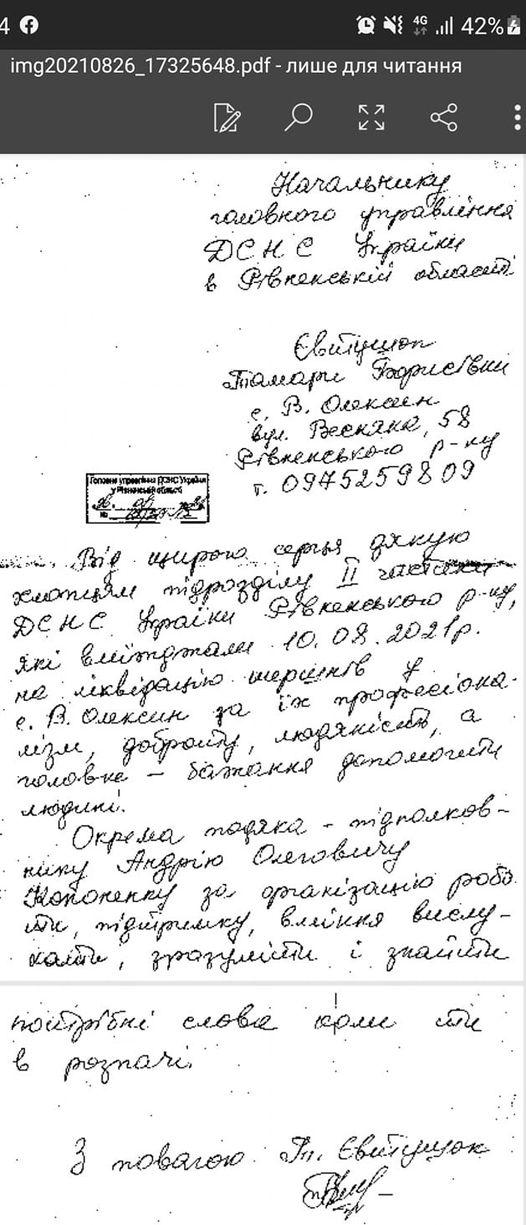 4G 42%
img20210826_17325648.pdf - лише для читання
Начальнику
головного управління
ДСНС України
в Рівненській області
Євтушок
Тамари Борисівни
с. В. Олексин
вул. Весняна, 58
Рівненського р-ну
т. 0975259809
Головне управління ДСНС України
у Рівненській області
№
Від щирого серця дякую
хлопцям підрозділу II частини
ДСНС України Рівненського р-ну,
які виїжджали 10.08.2021р.
на ліквідацію шершнів у
с. В. Олексин за їх професіона-
лізм, доброту, людяність, а
головне - бажання допомогти
людині.
Окрема подяка - підполков-
нику Андрію Олеговичу
Кононенку за організацію робо
ти, підтримку, вміння вислу-
хати, зрозуміти і знайти
потрібні слова коли ти
в розпачі.
З повагою Т. Євтушок